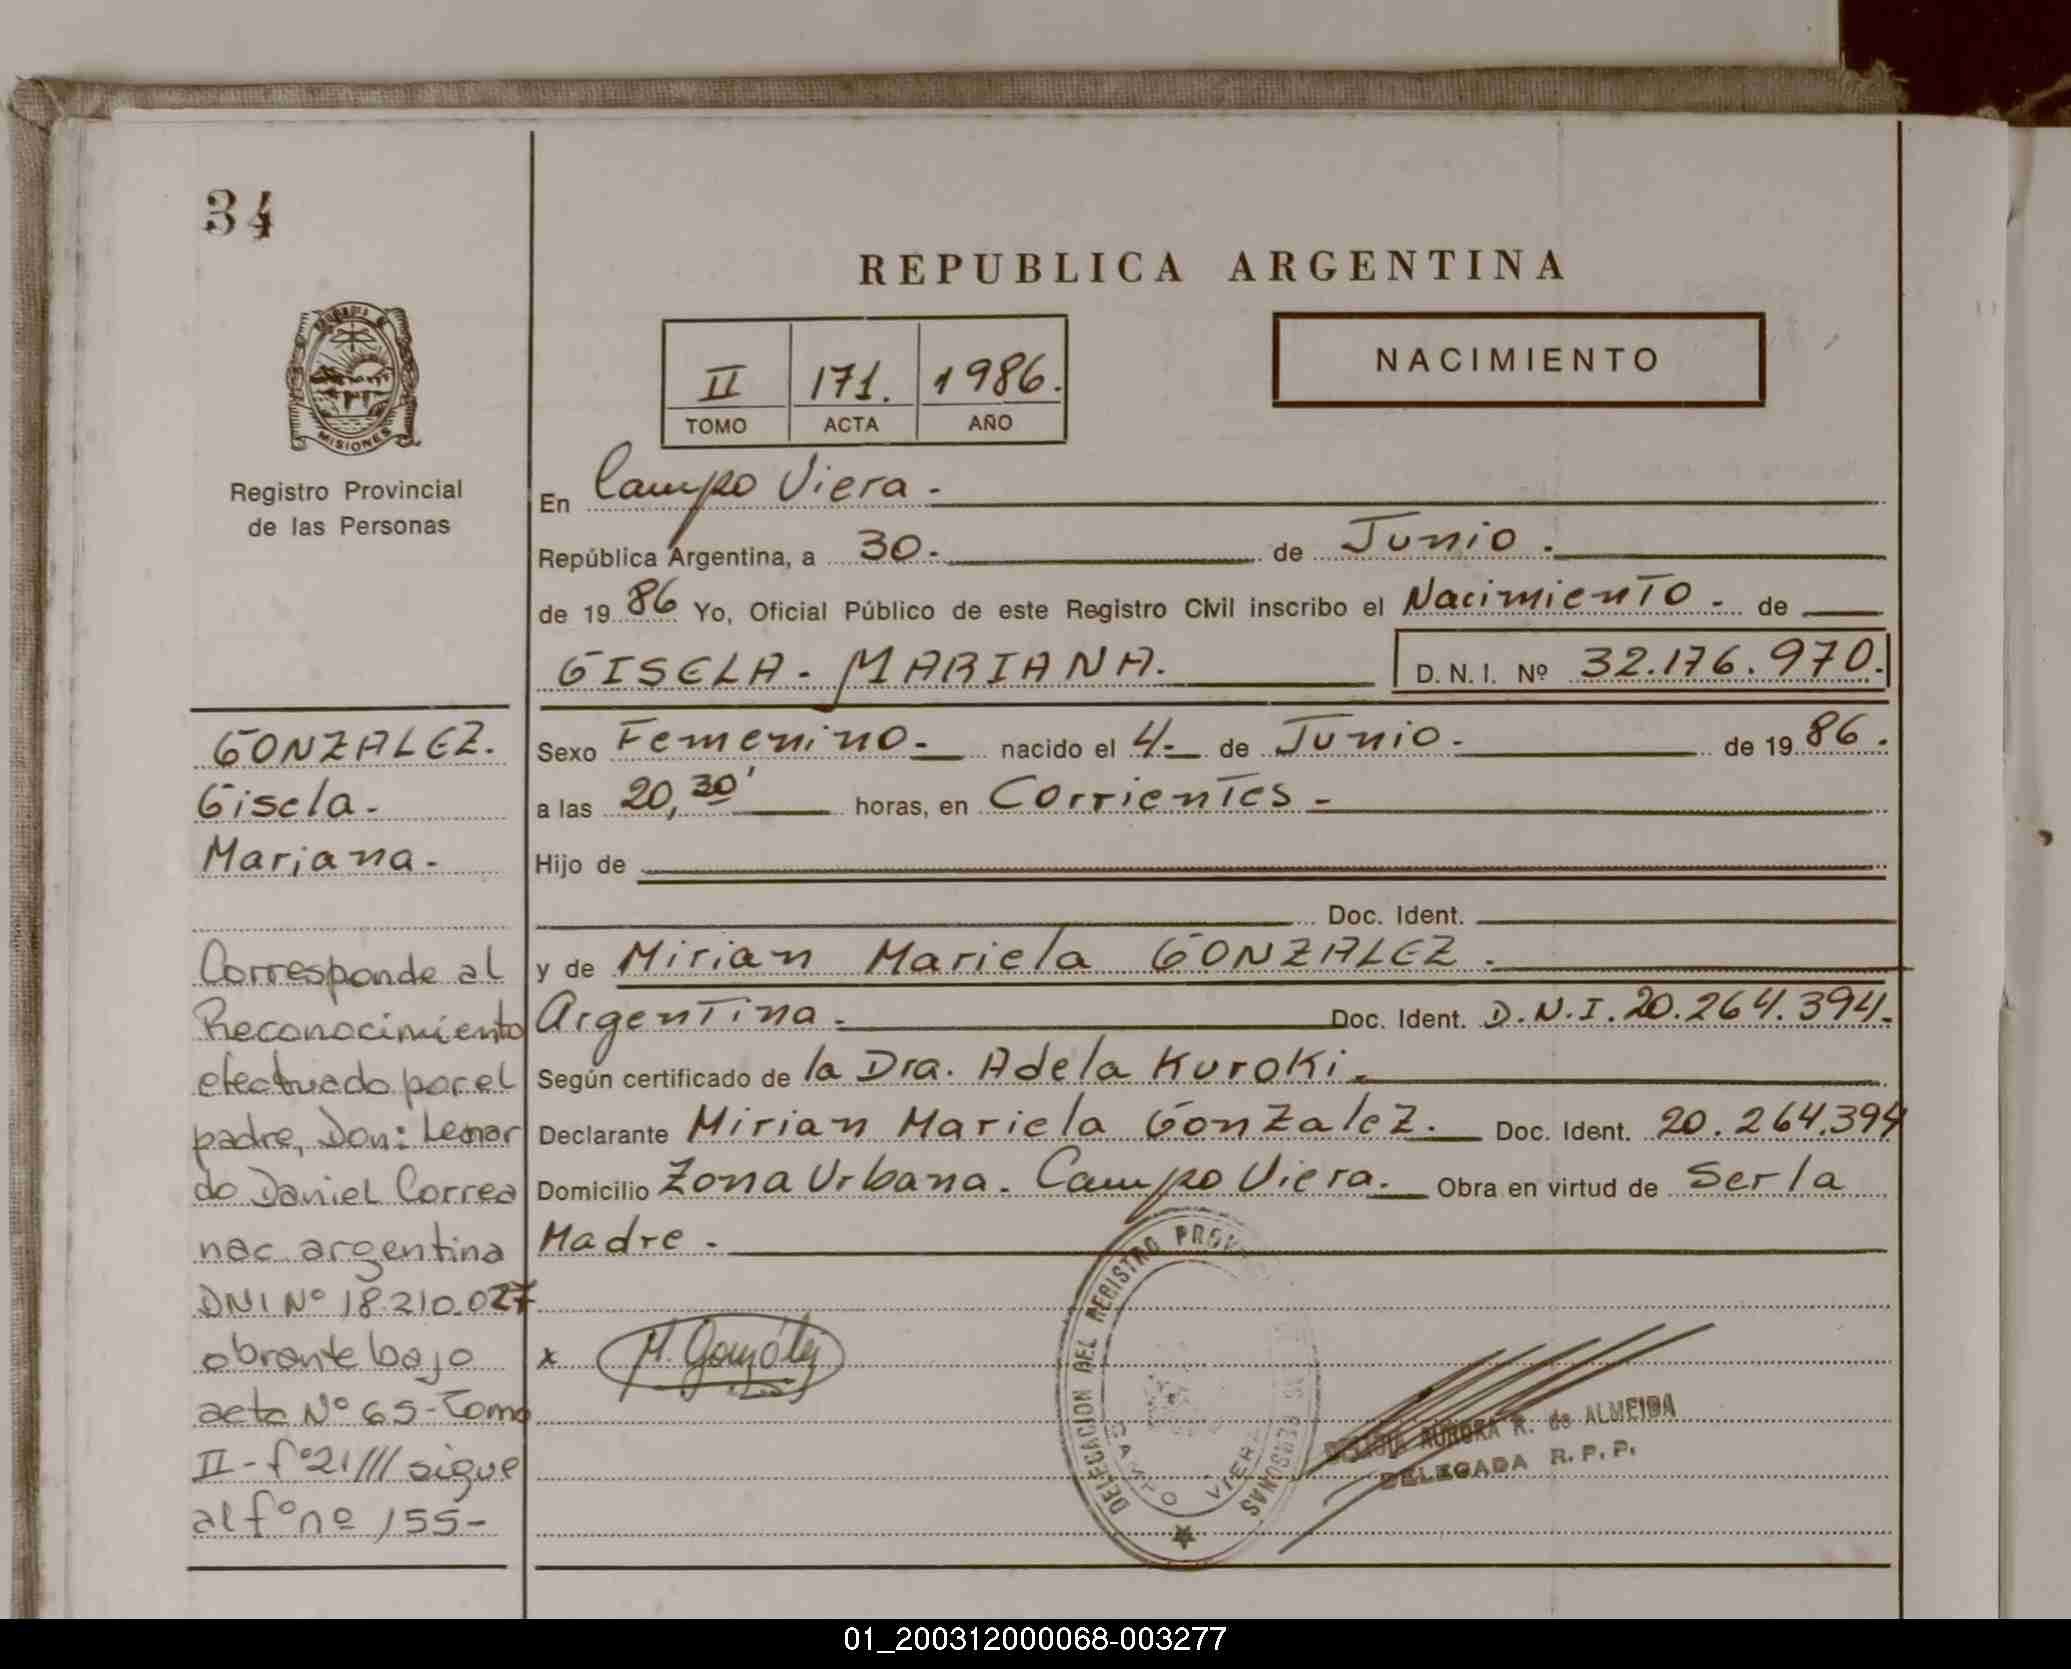 34
REPUBLICA ARGENTINA
MISIONES
Registro Provincial
de las Personas
II 171. 1986.
TOMO ACTA AÑO
NACIMIENTO
En Campo Viera -
República Argentina, a 30- de Junio.
de 19 86 Yo, Oficial Público de este Registro Civil inscribo el Nacimiento - de
GISELA - MARIANA. D. N. I. Nº 32.176.970.
Sexo Femenino- nacido el 4- de Junio. de 19 86.
a las 20,30' horas, en Corrientes -
Hijo de
Doc. Ident.
y de Mirian Mariela GONZALEZ.
Argentina - Doc. Ident. D.N.I. 20.264.394-
Según certificado de la Dra. Adela Kuroki.
Declarante Mirian Mariela GonZaleZ. Doc. Ident. 20.264.394
Domicilio Zona Urbana. Campo Viera. Obra en virtud de Ser la
Madre -
GONZALEZ.
Gisela -
Mariana -
Corresponde al
Reconocimiento
efectuado por el
padre, Don: Leonar
do Daniel Correa
nac argentina
DNI Nº 18.210.027
obrante bajo
acta Nº 65-Tomo
II - fº 21 /// sigue
al fº nº 155-
x M. González
DELEGACION DEL REGISTRO PROV
PERSONAS
CAMPO VIERA
AURORA R. de ALMEIDA
DELEGADA R.P.P.
01_200312000068-003277